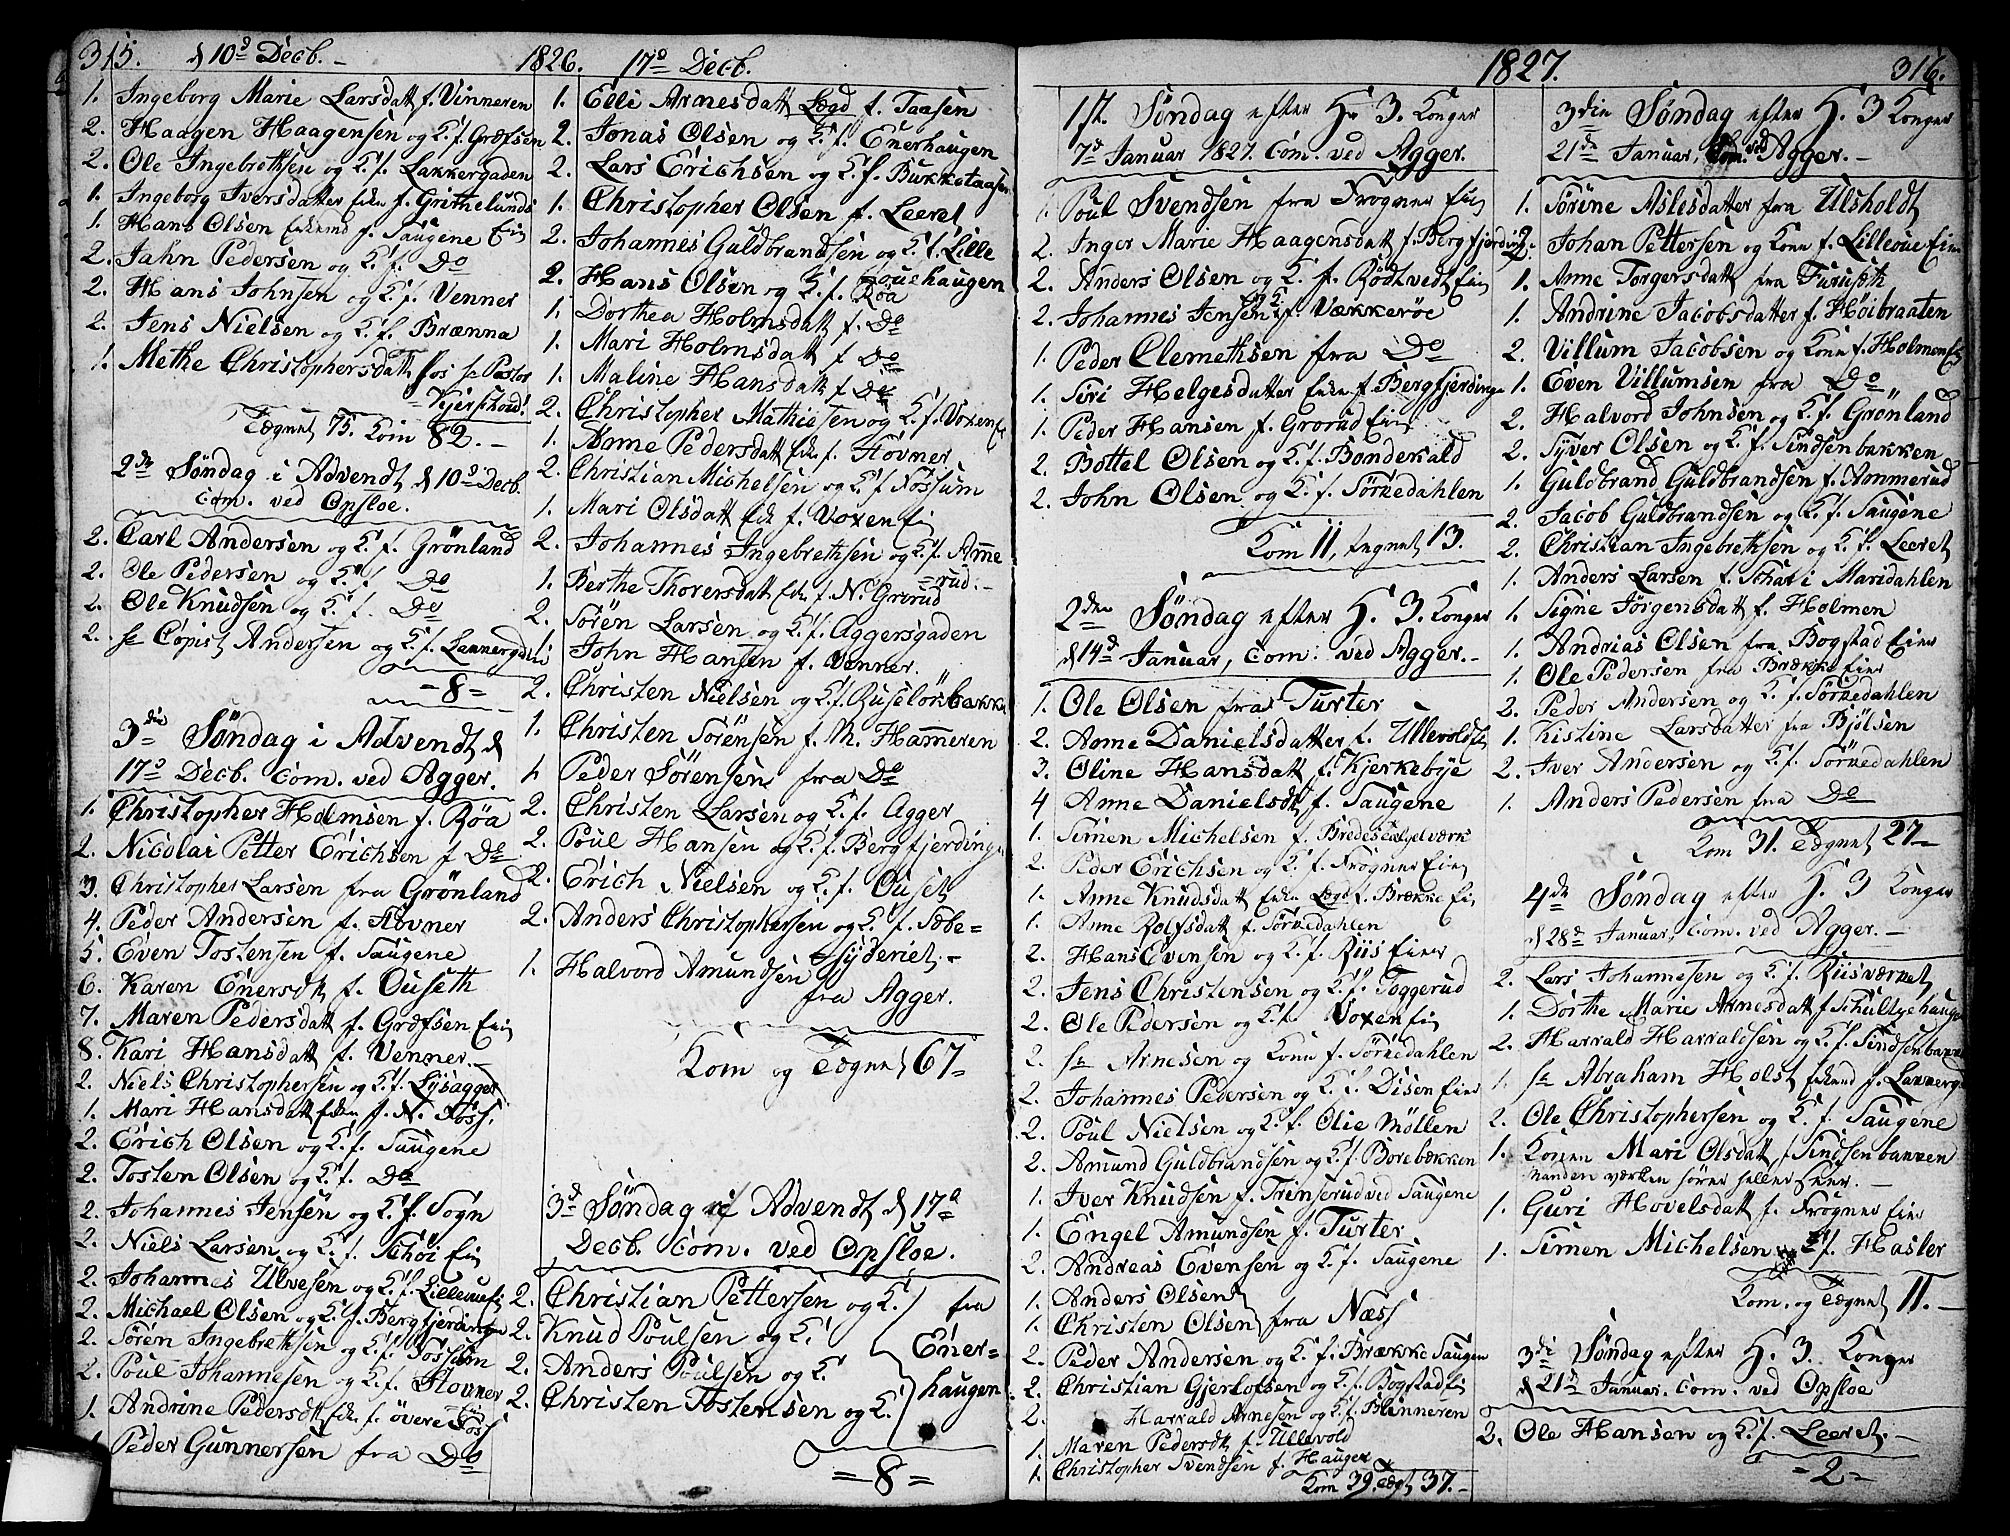 315. d 10de Decb. – 1826. 17de Decb.
1. Ingeborg Marie Larsdatt f. Vinneren
2. Haagen Haagensen og K. f. Græfsen
2. Ole Ingebrethsen og K. f. Lakkergaden
1. Ingeborg Iversdatter Enke f. Grithelunds
1. Hans Olsen Enkemd f. Saugene Ein
2. Jahn Pedersen og K. f. Do
2. Hans Johnsen og K. f. Venner
2. Jens Nielsen og K. f. Brænna
1. Methe Christophersdatt hos Hr Pastor
Kjerschow!
Tegnet 75. Kom 82. –
2den Søndag i Advendt d 10de Decb.
Com. ved Opsloe.
2. Carl Andersen og K. f. Grönland
2. Ole Pedersen og K. f. Do
2. Ole Knudsen og K. f. Do
2. Hr Copist Andersen og K. f. Lakkergaden
= 8 =
3die Søndag i Advendt d
17de Decb. Com. ved Agger.
1. Christopher Holmsen f. Röa
2. Nicolai Petter Erichsen f Do
3. Christopher Larsen fra Grönland
4. Peder Andersen f. Hovner
5. Even Tostensen f. Saugene
6. Karen Enersdt f. Ouseth
7. Maren Pedersdatt f. Grefsen Ein
8. Kari Hansdatt f. Venner.
2. Niels Christophersen og K. f. Lysagger
1. Mari Hansdatt Enke f. N. Foss.
2. Erich Olsen og K. f. Saugene
2. Tosten Olsen og K. f. Do
2. Johannes Jensen og K. f. Sogn
2. Niels Larsen og K. f. Schöi Ein
2. Johannes Ulvesen og K. f. Lilleoue Ein
2. Michael Olsen og K. f. Bergfjerdingen
2. Sören Ingebrethsen og K. f. Fossum
2. Poul Johannesen og K. f. Stovner
1. Andrine Pedersdt Enke f. övere Foss
1. Peder Gunnersen fra Do
1. Elli Arnesdatt Lægd f. Taasen
2. Jonas Olsen og K. f. Enerhaugen
2. Lars Erichsen og K. f. Bukketaasen
1. Christopher Olsen f. Leeret
2. Johannes Guldbrandsen og K. f. Lille
Touehaugen
2. Hans Olsen og K. f. Röa
1. Dorthea Holmsdatt f. Do
1. Mari Holmsdatt f Do
1. Maline Hansdatt f. Do
2. Christopher Mathiesen og K. f. Voxen Ein
1. Anne Pedersdatt Enke f. Hovner
2. Christian Michelsen og K. f Fossum
1. Mari Olsdatt Enke f. Voxen Ein
2. Johannes Ingebrethsen og K. f. Amme
=rud. –
1. Berthe Thoresdatt Enke f. N. Grorud
2. Sören Larsen og K. f. Aggersgaden
1. John Hansen f. Venner.
2. Christen Nielsen og K. f. Ruselökbakken
1. Christen Sörensen f. M. Hammeren
1. Peder Sörensen fra Do
2. Christen Larsen og K. f. Agger
2. Poul Hansen og K. f. Bergfjerdingen
2. Erich Nielsen og K. f. Ouset
2. Anders Christophersen og K. f. Sæbe=
=syderiet. –
1. Halvord Amundsen
fra Agger.
Kom og Tegnet 67=
3de Søndag i Advendt d 17de
Decb. Com. ved Opsloe.
2. Christian Pettersen og K.
2. Knud Poulsen og K.
2. Anders Poulsen og K
2. Christen Tostensen og K.
fra
Ener=
haugen
= 8 =
1827. 316.
1st. Søndag efter H. 3. Konger
7de Januar 1827. Com. ved Agger.
1. Poul Svendsen fra Frogner Ein
2. Inger Marie Haagensdatt f. Bergfjerding
2. Anders Olsen og K. f. Rödtvedt Ein
2. Johannes Jensen og K. f. Vækkeröe
1. Peder Clemethsen fra Do
1. Siri Helgesdatter Enke f. Bergfjerdingen
1. Peder Hansen f. Grorud Ein
2. Bottel Olsen og K. f. Bonderald
2. John Olsen og K. f. Sörkedahlen
Kom 11, tegnet 13.
2den Søndag efter H. 3. Konger
d 14de Januar, Com: ved Agger. –
1. Ole Olsen fra Turter
2. Anne Danielsdatter f. Ullevoldst
3. Oline Hansdatt f. Kjerkebye
4 Anne Danielsdt f. Saugene
1. Simen Michelsen f. Bredeschelværk
2. Peder Erichsen og K. f. Frogner Ein
1. Anne Knudsdatt Enke Lægd f. Brække Ein
1. Anne Rolfsdatt f. Sörkedahlen
2. Hans Evensen og K. f. Riis Eier
2. Jens Christensen og K. f. Toggerud
2. Ole Pedersen og K. f. Voxen Ein
2. Hr Arnesen og Kone f. Sörkedahlen
2. Johannes Pedersen og K. f. Disen Eier
2. Poul Nielsen og K. f. Olie Möllen
2. Amund Guldbrandsen og K. f. Borebækken
1. Iver Knudsen f. Trinserud ved Saugene
1. Engel Amundsen f. Turter
2. Andreas Evensen og K. f. Saugene
1. Anders Olsen
1. Christen Olsen fra Næss
2. Peder Andersen og K. f. Brække Saugen
2. Christian Gjerlofsen og K. f. Bogstad Ein
2. Harrald Arnesen og K. f. Blinneren
1. Maren Pedersdt f. Ullevold
1. Christopher Svendsen f. Hauger
Kom 39. tegt 37. –
3die Søndag efter H. 3 Konger
21de Januar, Com. ved Agger. –
1. Sörine Aslesdatter fra Ulsholdt
2. Johan Pettersen og Kone f. Lilleoue Ein
1. Anne Torgersdatt fra Furuseth
1. Andrine Jacobsdatter f. Höibraaten
2. Villum Jacobsen og Kone f. Holmen Ein
1. Even Villumsen fra Do
2. Halvord Johnsen og K. f. Grönland
2. Syver Olsen og K. f. Sindsenbakken
1. Guldbrand Guldbrandsen f. Ammerud
2. Jacob Guldbrandsen og K. f. Saugene
2. Christian Ingebrethsen og K. f. Leeret
1. Anders Larsen f. Schar i Maridahlen
1. Signe Jörgensdatt f. Holmen
1. Andrias Olsen fra Bogstad Eier
1. Ole Pedersen fra Brække Eier
2. Peder Andersen og K. f. Sörkedahlen
1. Kistine Larsdatter fra Bjölsen
2. Iver Andersen og K. f. Sörkedahlen
1. Anders Pedersen fra Do
Kom 31. Tegnet 27=
4de Søndag efter H. 3 Konger
d 28de Januar, Com. ved Agger. –
2. Lars Johannesen og K. f. Riisværket
1. Dorthe Marie Arnesdatt f Schultzehaugen
2. Harrald Harraldsen og K. f. Sindsenbakken
1. Hr Abraham Holst Enkemd f. Lakkergd
2. Ole Christophersen og K. f. Saugene
1. Konen Mari Olsdatt f Sindsenbakken
Manden værken hörer heller seer. –
1. Guri Hovelsdatt f. Frogner Eier
1. Simen Michelsen f. Hasler
Kom. og Tegnet 11. –
3die Søndag efter H. 3. Konger
d 21de Januar. Com. ved Opsloe
2. Ole Hansen og K. f. Leeret. –
= 2 =